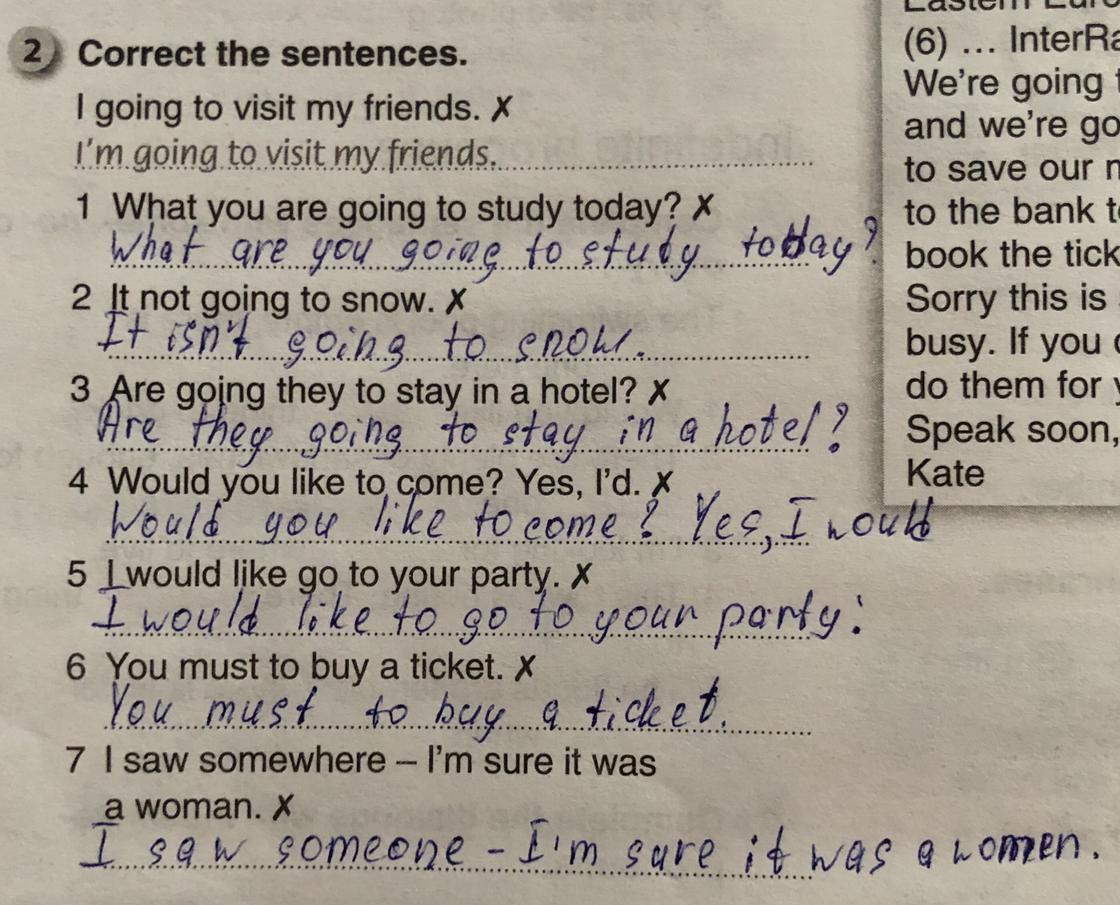 2 Correct the sentences.
I going to visit my friends. ✗
I'm going to visit my friends.
1 What you are going to study today? ✗
What are you going to study today?
2 It not going to snow. ✗
It isn't going to snow.
3 Are going they to stay in a hotel? ✗
Are they going to stay in a hotel?
4 Would you like to come? Yes, I'd. ✗
Would you like to come? Yes, I would
5 I would like go to your party. ✗
I would like to go to your party.
6 You must to buy a ticket. ✗
You must to buy a ticket.
7 I saw somewhere – I'm sure it was
a woman. ✗
I saw someone - I'm sure it was a women.
(6) ... InterRa
We're going
and we're go
to save our
to the bank
book the tick
Sorry this is
busy. If you
do them for
Speak soon,
Kate